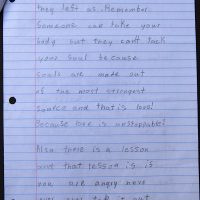 they left as. Remember
Someone can take your
body but they can't Jack
your Soul because
Souls are made out
of the most strongest
source and that is love!
Because love is unstoppable!
Also there is a lesson
and that lesson is if
you are angry have